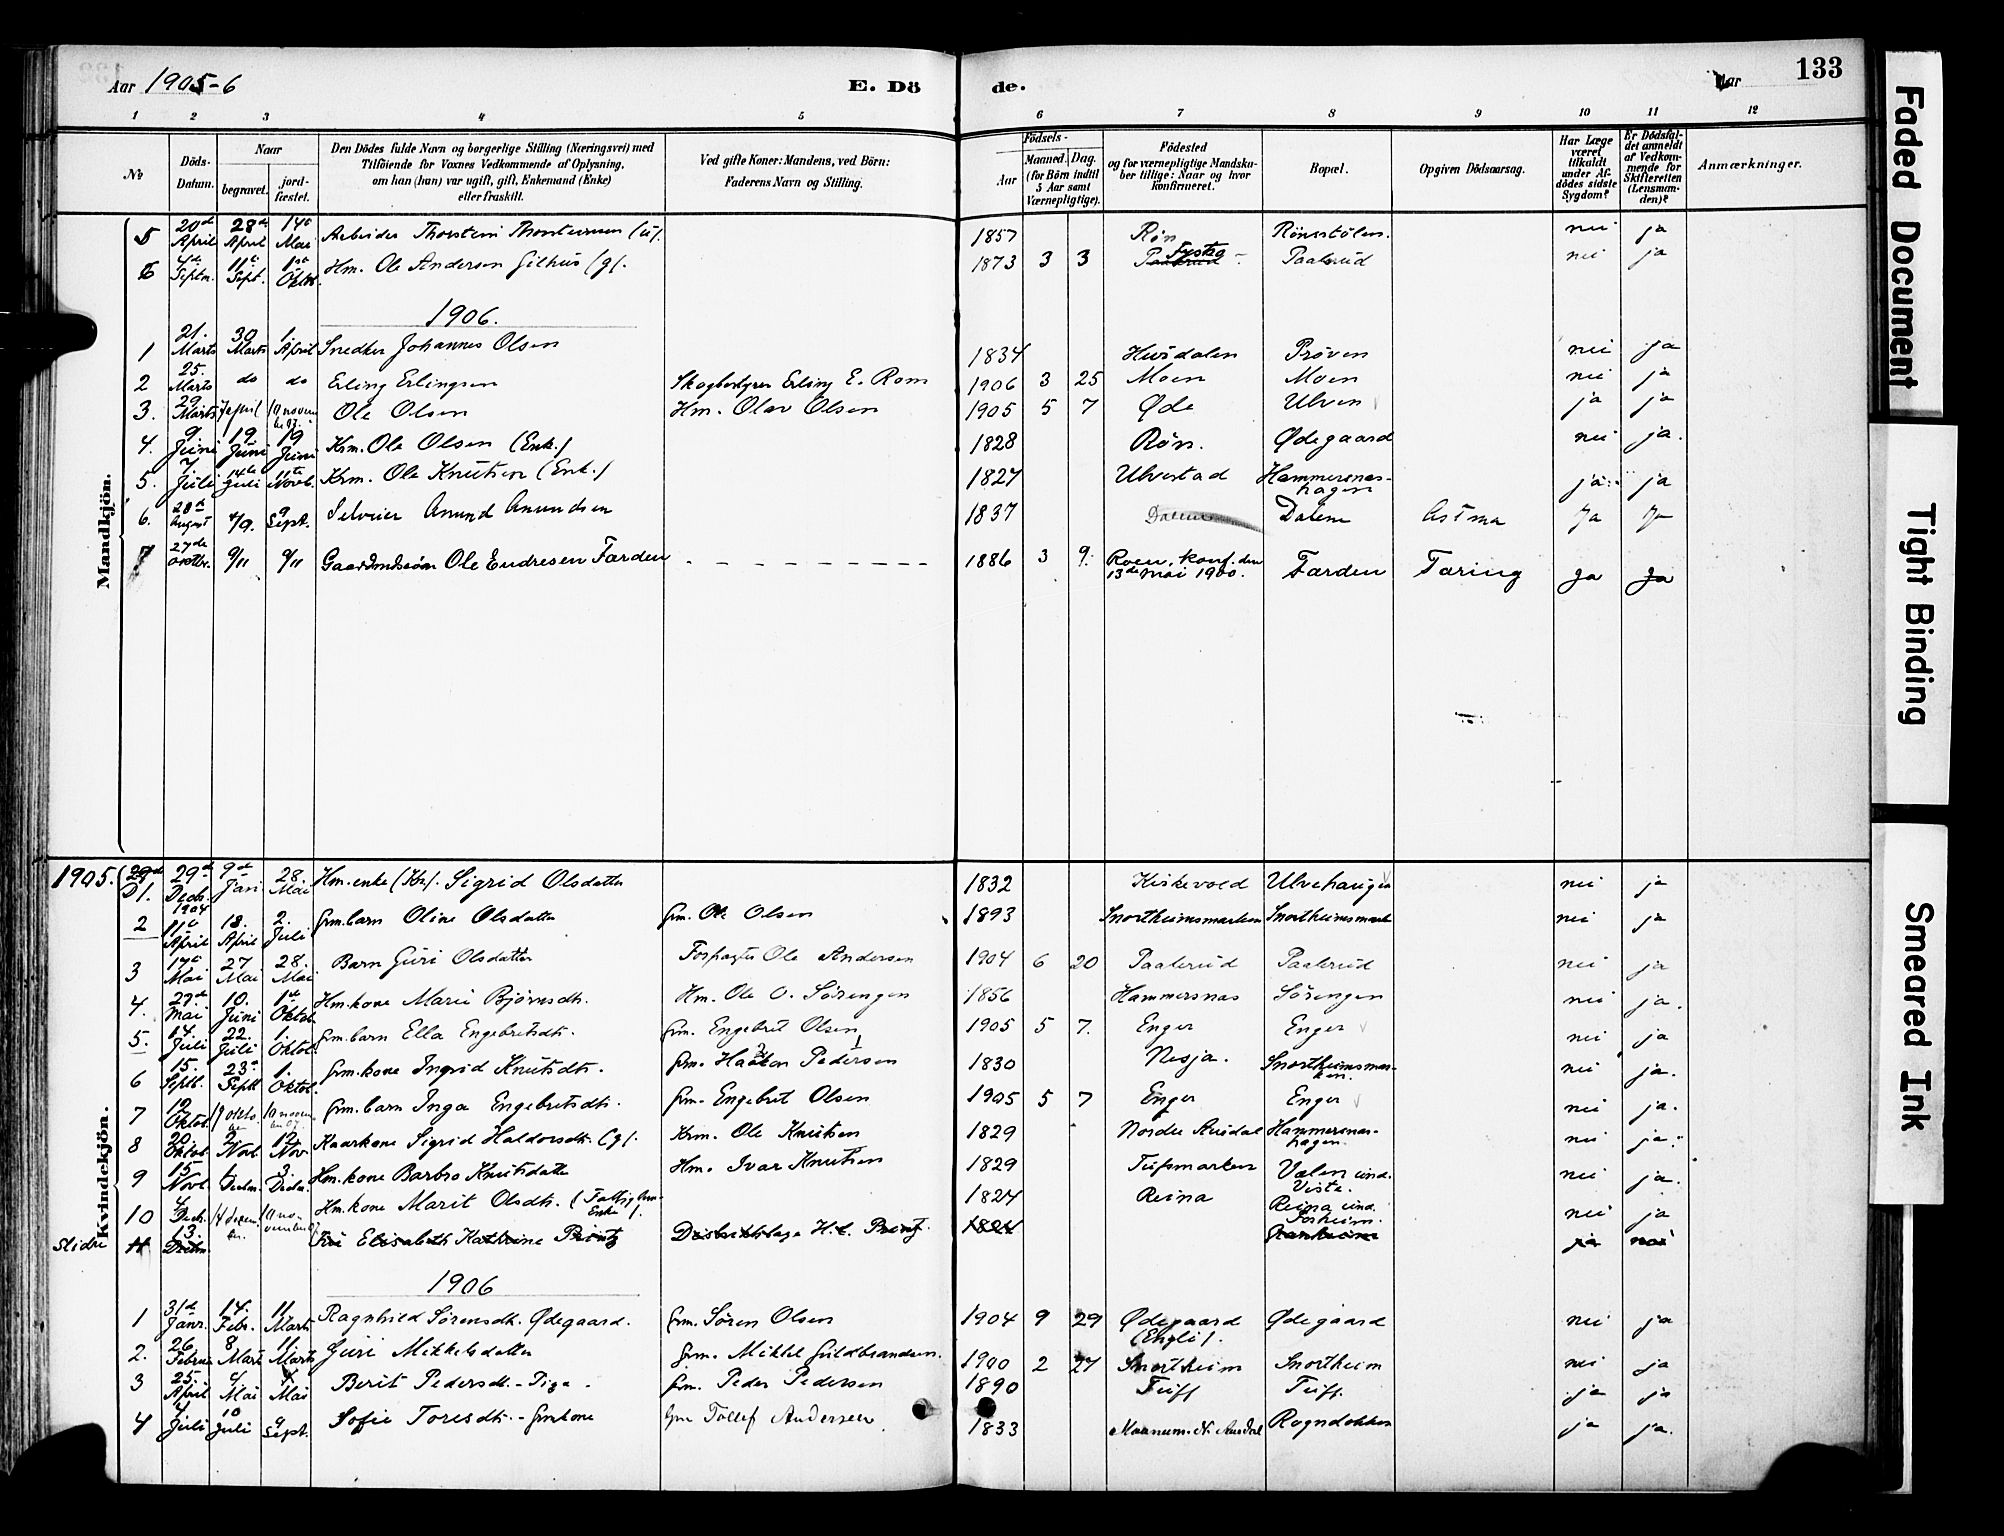 Aar 1905-6
E. Dö
de.
Aar
133
1 2 3 4 5 6 7 8 9 10 11 12
No
Döds-Datum.
Naar
begravet.
jord-fæstet.
Den Dödes fulde Navn og borgerlige Stilling (Næringsvei) med
Tilföiende for Voxnes Vedkommende af Oplysning,
om han (hun) var ugift, gift, Enkemand (Enke)
eller fraskilt.
Ved gifte Koner: Mandens, ved Börn:
Faderens Navn og Stilling.
Födsels-
Aar
Maaned. Dag.
(for Börn indtil
5 Aar samt
Værnepligtige).
Födested
og for værnepligtige Mandsku-
ber tillige: Naar og hvor
konfirmeret.
Bopæl.
Opgiven Dödsaarsag.
Har Læge
været
tilkaldt
under Af-
dödes sidste
Sygdom?
Er Dödsfal-
det anmeldt
af Vedkom-
mende for
Skifteretten
(Lensman-
den)?
Anmærkninger.
Mandkjön.
5 20de April 28de April 14de Mai Arbeider Thorstein (u). 1857 Røn Rønsstølen. nei ja
6 4de Septm. 11te Sept. 1ste Oktbr. Hm. Ole Andersen Gilhus (g). 1873 3 3 Paalerud Paalerud nei ja
1906.
1 21. Marts 30 Marts 1. April Snedker Johannes Olsen 1834 Prøven nei ja
2 25. Marts do do Erling Erlingsen Skogbestyrer Erling E. Rom 1906 3 25 Moen Moen nei ja
3. 29. Marts 7 april 10 novem ber 07. Ole Olsen Hm. Olav Olsen 1905 5 7 Øde Ulven ja ja
4. 9. Juni 19. Juni 19 Juni Krm. Ole Olsen (Enk.) 1828 Røn. Ødegaard nei ja.
5. 7. Juli 14de Juli 11te Novb. Krm. Ole Knutsen (Enk.) 1827 Ulvestad Hammersnes-hagen ja ja
6. 28de August 4/9. 9 Sept. Selveier Anund Anundsen 1837 Dalene Dalene Astma Ja Ja
7 27de Oktbr. 9/11 9/11 Gaardmdssøn Ole Endresen Færden 1886 3 9. Roen, Konf. den 13de Mai 1900. Færden Tæring Ja Ja
Kvindekjön.
1905. 1. 29de Decb. 1904 9de Jan 28. Mai Hm. enke (Kr). Sigrid Olsdatter 1832 Kirkevold Ulvehaugen nei ja
2 11te April 18. April 2. Juli Grm. barn Oline Olsdatter Grm. Ole Olsen 1893 Snortheimsmarken Snortheimsmark nei ja
3 17de Mai 27 Mai 28. Mai Barn Guri Olsdatter Forpagter Ole Andersen 1904 6 20 Paalerud Paalerud nei ja
4. 27de Mai 10. Juni 1ste Oktob. Hm. kone Marie Bjørnsdtr. Hm. Ole O. Sørengen 1856 Hammersnas Sørengen nei ja.
5. 14. Juli 22. Juli 1. Oktob. Grm. barn Ella Engebretsdtr. Grm. Engebret Olsen 1905 5 7. Enger Enger nei ja
6 15. Septb. 23de Septb 1. Oktob. Grm. kone Ingrid Knutsdtr. Grm. Haakon Pedersen 1830 Nesja. Snortheimsmar-ken. nei ja.
7 12 Oktob. 19 okto ber 10 novem ber 07. Grm. barn Inga Engebretsdtr. Grm. Engebret Olsen 1905 5 7 Enger Enger nei ja.
8 20. Oktob 2. Novb 12. Nov Kaarkone Sigrid Haldorsdtr. (g). Krm. Ole Knutsen 1829 Nordre Aurdal Hammersnes-hagen. nei ja.
9 15. Novb 1. Decbm. 3. Decbr. Hm. kone Barbro Knutsdatter Hm. Ivar Knutsen 1829 Tufsmarken Vælen und. Viste. nei ja.
10 4 Decb. 14 decem ber 10 no-vember 07. Hm. kone Marit Olsdtr. (Fattig Hm. Enke). 1824 Reina Reina und. Forheim. nei ja
Slidre 11 13. Decbm. Fru Elisabeth Kathrine Printz Distriktslæge H. C. Printz. 1824 ja nei
1906
1 31te Janr. 14. Febr. 11. Marts Ragnhild Sørensdtr. Ødegaard. Grm. Søren Olsen 1904 9 29 Ødegaard Ødegaard nei ja
2. 26 Februar 8 Marts 11. Marts Guri Mikkelsdatter Grm. Mikkel Guldbrandsen. 1900 2 27 Snortheim Snortheim nei ja
3 25. April 4. Mai Mai Berit Pedersdtr. - Pige. Grm. Peder Pedersen 1890 Tuff Tuff. ja ja
4 4 Juli 10 Juli 9 Sept. Sofie Toresdtr. - Grmkone Grm Tollef Andersen 1833 N. Aurdal Rogndokken ja ja.
Faded Document
Tight Binding
Smeared Ink